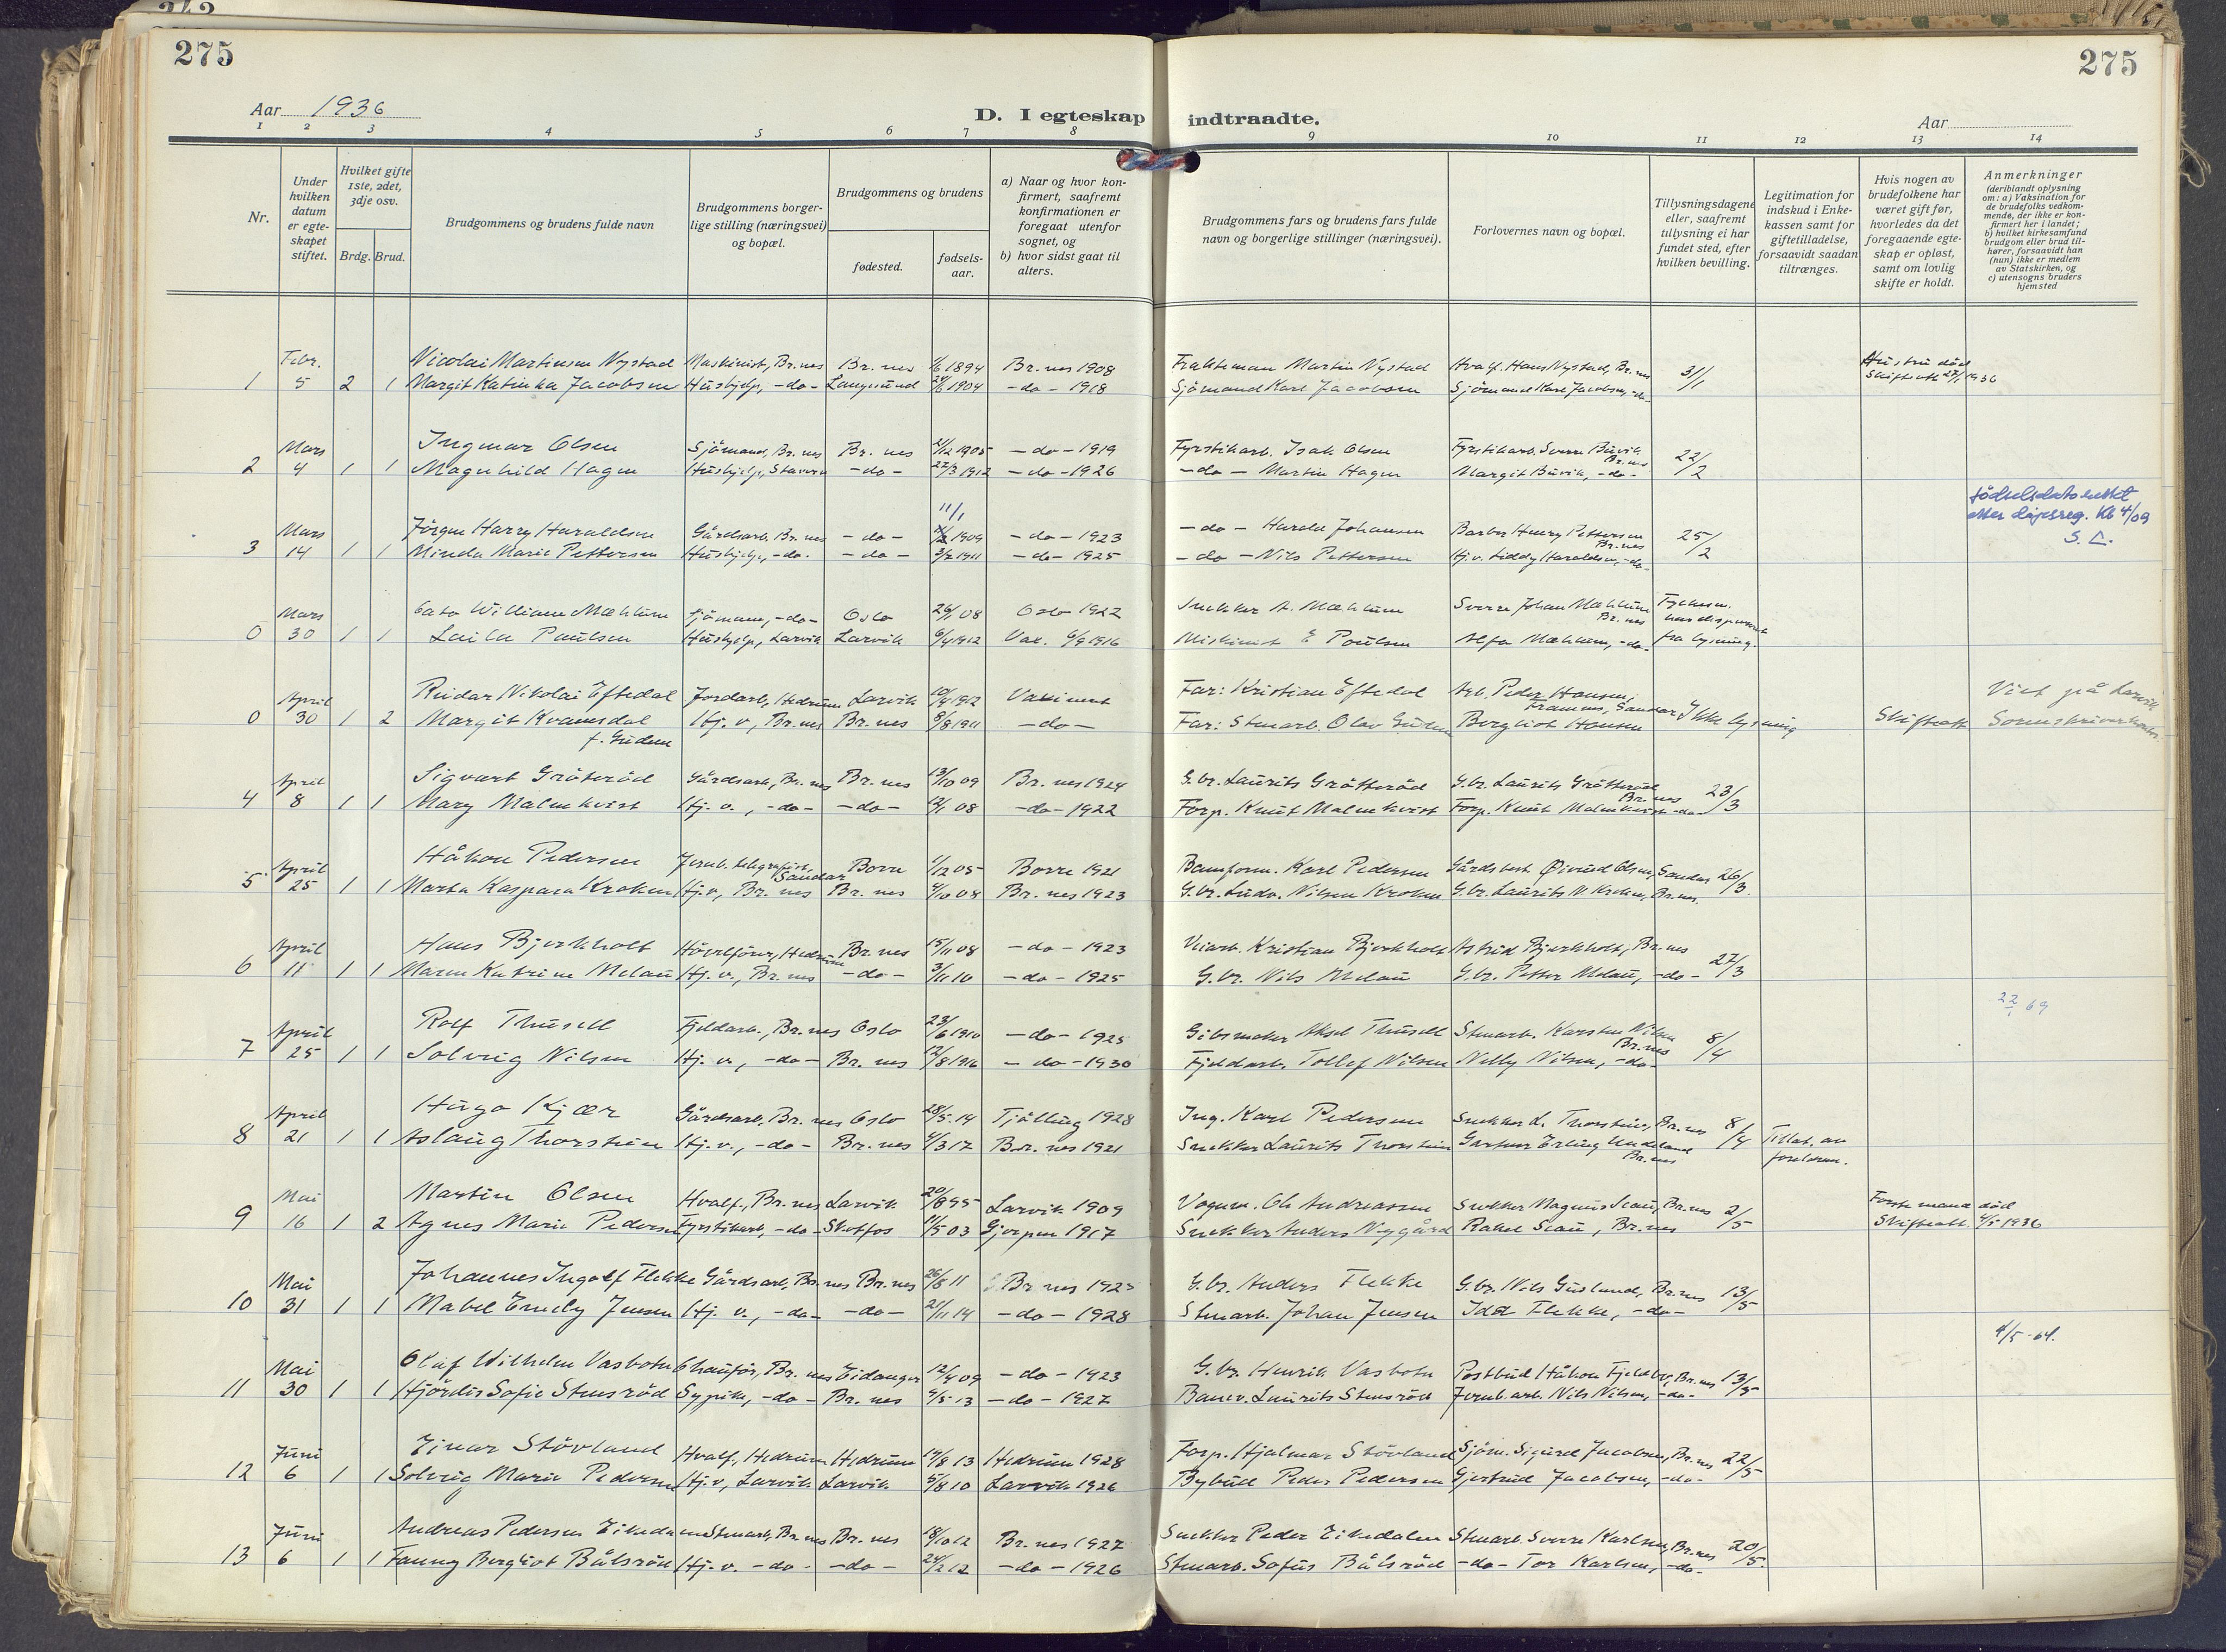 275
275
Aar 1936
D. I egteskap indtraadte.
Aar
1 2 3 4 5 6 7 8 9 10 11 12 13 14
Nr.
Under hvilken datum er egteskapet stiftet.
Hvilket gifte 1ste, 2det, 3dje osv.
Brdg. Brud.
Brudgommens og brudens fulde navn
Brudgommens borgerlige stilling (næringsvei) og bopæl.
Brudgommens og brudens
fødested.
fødselsaar.
a) Naar og hvor konfirmert, saafremt konfirmationen er foregaat utenfor sognet, og
b) hvor sidst gaat til alters.
Brudgommens fars og brudens fars fulde navn og borgerlige stillinger (næringsvei).
Forlovernes navn og bopæl.
Tillysningsdagene eller, saafremt tillysning ei har fundet sted, efter hvilken bevilling.
Legitimation for indskud i Enkekassen samt for giftetilladelse, forsaavidt saadan tiltrænges.
Hvis nogen av brudefolkene har været gift før, hvorledes da det foregaaende egteskap er opløst, samt om lovlig skifte er holdt.
Anmerkninger
(deriblandt oplysning om: a) Vaksination for de brudefolks vedkommende, der ikke er konfirmert her i landet; b) hvilket kirkesamfund brudgom eller brud tilhører, forsaavidt han (hun) ikke er medlem av Statskirken, og c) utensogns bruders hjemsted
Febr. Nicolai Martinsen Nystad Maskinist, Br.nes Br. nes 1894 Br. nes 1908 Frakteman Martin Nystad Hvalf. Hans Nystad, Br. nes 31/1 Hustru död
1 5 2 1 Margit Katinka Jacobsen Hushjelp, -do- Langesund 1904 -do- 1918 Sjömand Karl Jacobsen Sjömand Karl Jacobsen, -do- Skifteatt. 27/1 1936
Mars Ingmar Olsen Sjömand, Br. nes Br. nes 1905 -do- 1919 Fyrstikarb. Isak Olsen Fyrstikarb. Sverre Buvik Br. nes 22/2
2 4 1 1 Magnhild Hagen Hushjelp, Stavern -do- 22/3 1912 -do- 1926 -do- Martin Hagen Margit Buvik, -do-
11/1
födselsdato rettet
etter dåpsreg. Kb 4/09
S. L.
Mars Jörgen Harry Haraldsen Gårdsarb. Br. nes -do- 1909 -do- 1923 -do- Harald Johansen Barber Henry Pettersen Br. nes 25/2
3 14 1 1 Minda Marie Pettersen Hushjelp, -do- -do- 1911 -do- 1925 -do- Nils Pettersen Hj.v. Liddy Haraldsen, -do-
Mars Cato William Mæhlum Sjömann, -do- Oslo 26/1 08 Oslo 1922 Snekker A. Mæhlum Sverre Johan Mæhlum Br. nes Fylkesm. har dispensert
0 30 1 1 Laila Paulsen Hushjelp, Larvik Larvik 6/4 1912 Vax. 6/9 1916 Maskinist E Poulsen Alfa Mæhlum, -do- fra lysning.
April Reidar Nikolai Eftedal Jordarb, Hedrum Larvik 10/4 1912 Vaxinert Far: Kristian Eftedal Arb. Peder Hansen, Framnes, Sandar Ikke lysning Viet på Larvik
0 30 1 2 Margit Kvamsdal f. Gudem Hj. v., Br. nes Br. nes 8/8 1911 -do- Far: Stenarb. Olav Gudem Bergliot Hansen Skifteatt. Sorenskriverkontor.
April Sigvart Gröteröd Gårdsarb, Br. nes Br. nes 13/10 09 Br. nes 1924 G. br. Laurits Grötteröd G. br. Laurits Grötteröd Br. nes 23/3
4 8 1 1 Mary Malmkvist Hj. v., -do- -do- 08 -do- 1922 Forp. Knut Malmkvist Forp. Knut Malmkvist -do-
April Håkon Pedersen Jernb. telegrafist, Sandar Borre 1/12 05 Borre 1921 Banform. Karl Pedersen Gårdsbest. Öivind Olsen, Sandar 26/3
5 25 1 1 Marta Kaspara Kroken Hj.v, Br. nes Br. nes 9/10 08 Br. nes 1923 G. br. Ludv. Nilsen Kroken G. br. Laurits N. Kroken, Br. nes.
April Hans Bjerkholt Hövelförer, Hedrum Br. nes 15/11 08 -do- 1923 Veiarb. Kristian Bjerkholt Astrid Bjerkholt, Br. nes 27/3
6 11 1 1 Maren Katrine Melau Hj. v., Br. nes -do- 3/11 10 -do- 1925 G. br. Nils Melau G. br. Petter Melau, -do-
April Rolf Thusell Fjeldarb., Br. nes Oslo 23/6 1910 -do- 1925 Gibsmaker Aksel Thusell Stenarb. Karsten Nilsen Br. nes 8/4 22/1 69
7 25 1 1 Solveig Nilsen Hj. v., -do- Br. nes 12/8 1916 -do- 1930 Fjeldarb. Tollef Nilsen Nelly Nilsen, -do-
April Hugo Kjær Gårdsarb, Br. nes Oslo 28/5 14 Tjölling 1928 Ing. Karl Pedersen Snekker L. Thorstein, Br. nes 8/4 Tillat. av foreldrene.
8 21 1 1 Aslaug Thorstein Hj. v., -do- Br. nes 4/3 17 Br. nes 1921 Snekker Laurits Thorstein Gartner Erling Undeland Br. nes
Mai Martin Olsen Hvalf., Br. nes Larvik 20/8 95 Larvik 1909 Vognm. Ole Andreassen Snekker Magnus Scau, Br. nes 2/5 Forste mand död
9 16 1 2 Agnes Marie Pedersen Fyrstikarb, -do- Skotfos 11/5 03 Gjerpen 1917 Snekker Anders Nygård Rakel Scau, Br. nes Skifteatt. 4/5 1936
Mai Johannes Ingolf Flekke Gårdsarb, Br. nes Br. nes 26/8 11 Br. nes 1925 G. br. Anders Flekke G. br. Nils Guslund, Br. nes 13/5
10 31 1 1 Mabel Emely Jensen Hj. v., -do- -do- 21/11 14 -do- 1928 Stenarb. Johan Jensen Ida Flekke, -do-
4/5-64.
Mai Oluf Wilhelm Vasbotn Chauför, Br. nes Eidanger 12/4 09 -do- 1923 G. br. Henrik Vasbotn Postbud Håkon Fjeldbe, Br. nes 13/5
11 30 1 1 Hjördis Sofie Stensröd Sypike, -do- Br. nes 5/5 13 -do- 1927 Banev. Laurits Stensröd Jernb. arb. Nils Nilsen, -do-
Juni Ejnar Stövland Hvalf., Hedrum Hedrum 19/8 13 Hedrum 1928 Forp. Hjalmar Stövland Sjöm. Sigurd Jacobsen, Br. nes 22/5
12 6 1 1 Solveig Marie Pedersen Hj.v, Larvik Larvik 5/8 10 Larvik 1926 Bybud Peder Pedersen Gjertrud Jacobsen, -do-
Juni Andreas Pedersen Eikedalen Stenarb, Br. nes Br. nes 18/10 12 Br. nes 1927 Snekker Peder Eikedalen Stenarb. Sverre Karlsen, Br. nes 20/5
13 6 1 1 Fanny Bergliot Bålsröd Hj. v. -do- -do- 24/2 12 -do- 1926 Stenarb. Sofus Bålsröd -do- Tor Karlsen, -do-